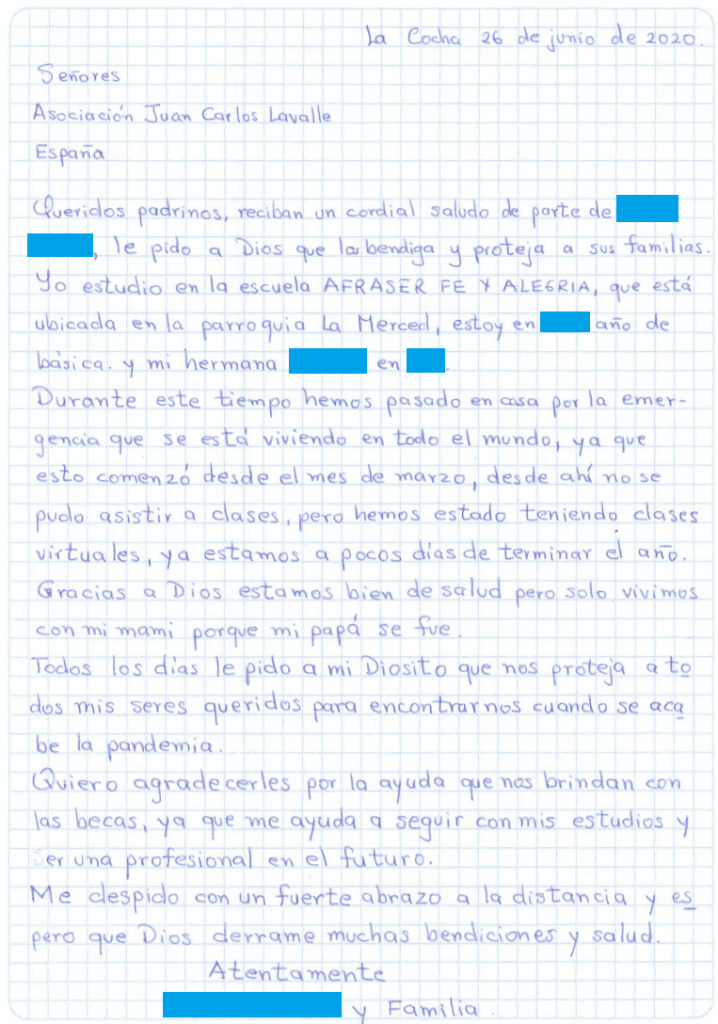 La Cocha 26 de junio de 2020.
Señores
Asociación Juan Carlos Lavalle
España
Queridos padrinos, reciban un cordial saludo de parte de
, le pido a Dios que las bendiga y proteja a sus familias.
Yo estudio en la escuela AFRASER FE Y ALEGRIA, que está
ubicada en la parroquia La Merced, estoy en año de
básica. y mi hermana en .
Durante este tiempo hemos pasado en casa por la emer-
gencia que se está viviendo en todo el mundo, ya que
esto comenzó desde el mes de marzo, desde ahí no se
pudo asistir a clases, pero hemos estado teniendo clases
virtuales, ya estamos a pocos días de terminar el año.
Gracias a Dios estamos bien de salud pero solo vivimos
con mi mami porque mi papá se fue.
Todos los días le pido a mi Diosito que nos proteja a to
dos mis seres queridos para encontrarnos cuando se aca
be la pandemia.
Quiero agradecerles por la ayuda que nos brindan con
las becas, ya que me ayuda a seguir con mis estudios y
ser una profesional en el futuro.
Me despido con un fuerte abrazo a la distancia y es
pero que Dios derrame muchas bendiciones y salud.
Atentamente
y Familia